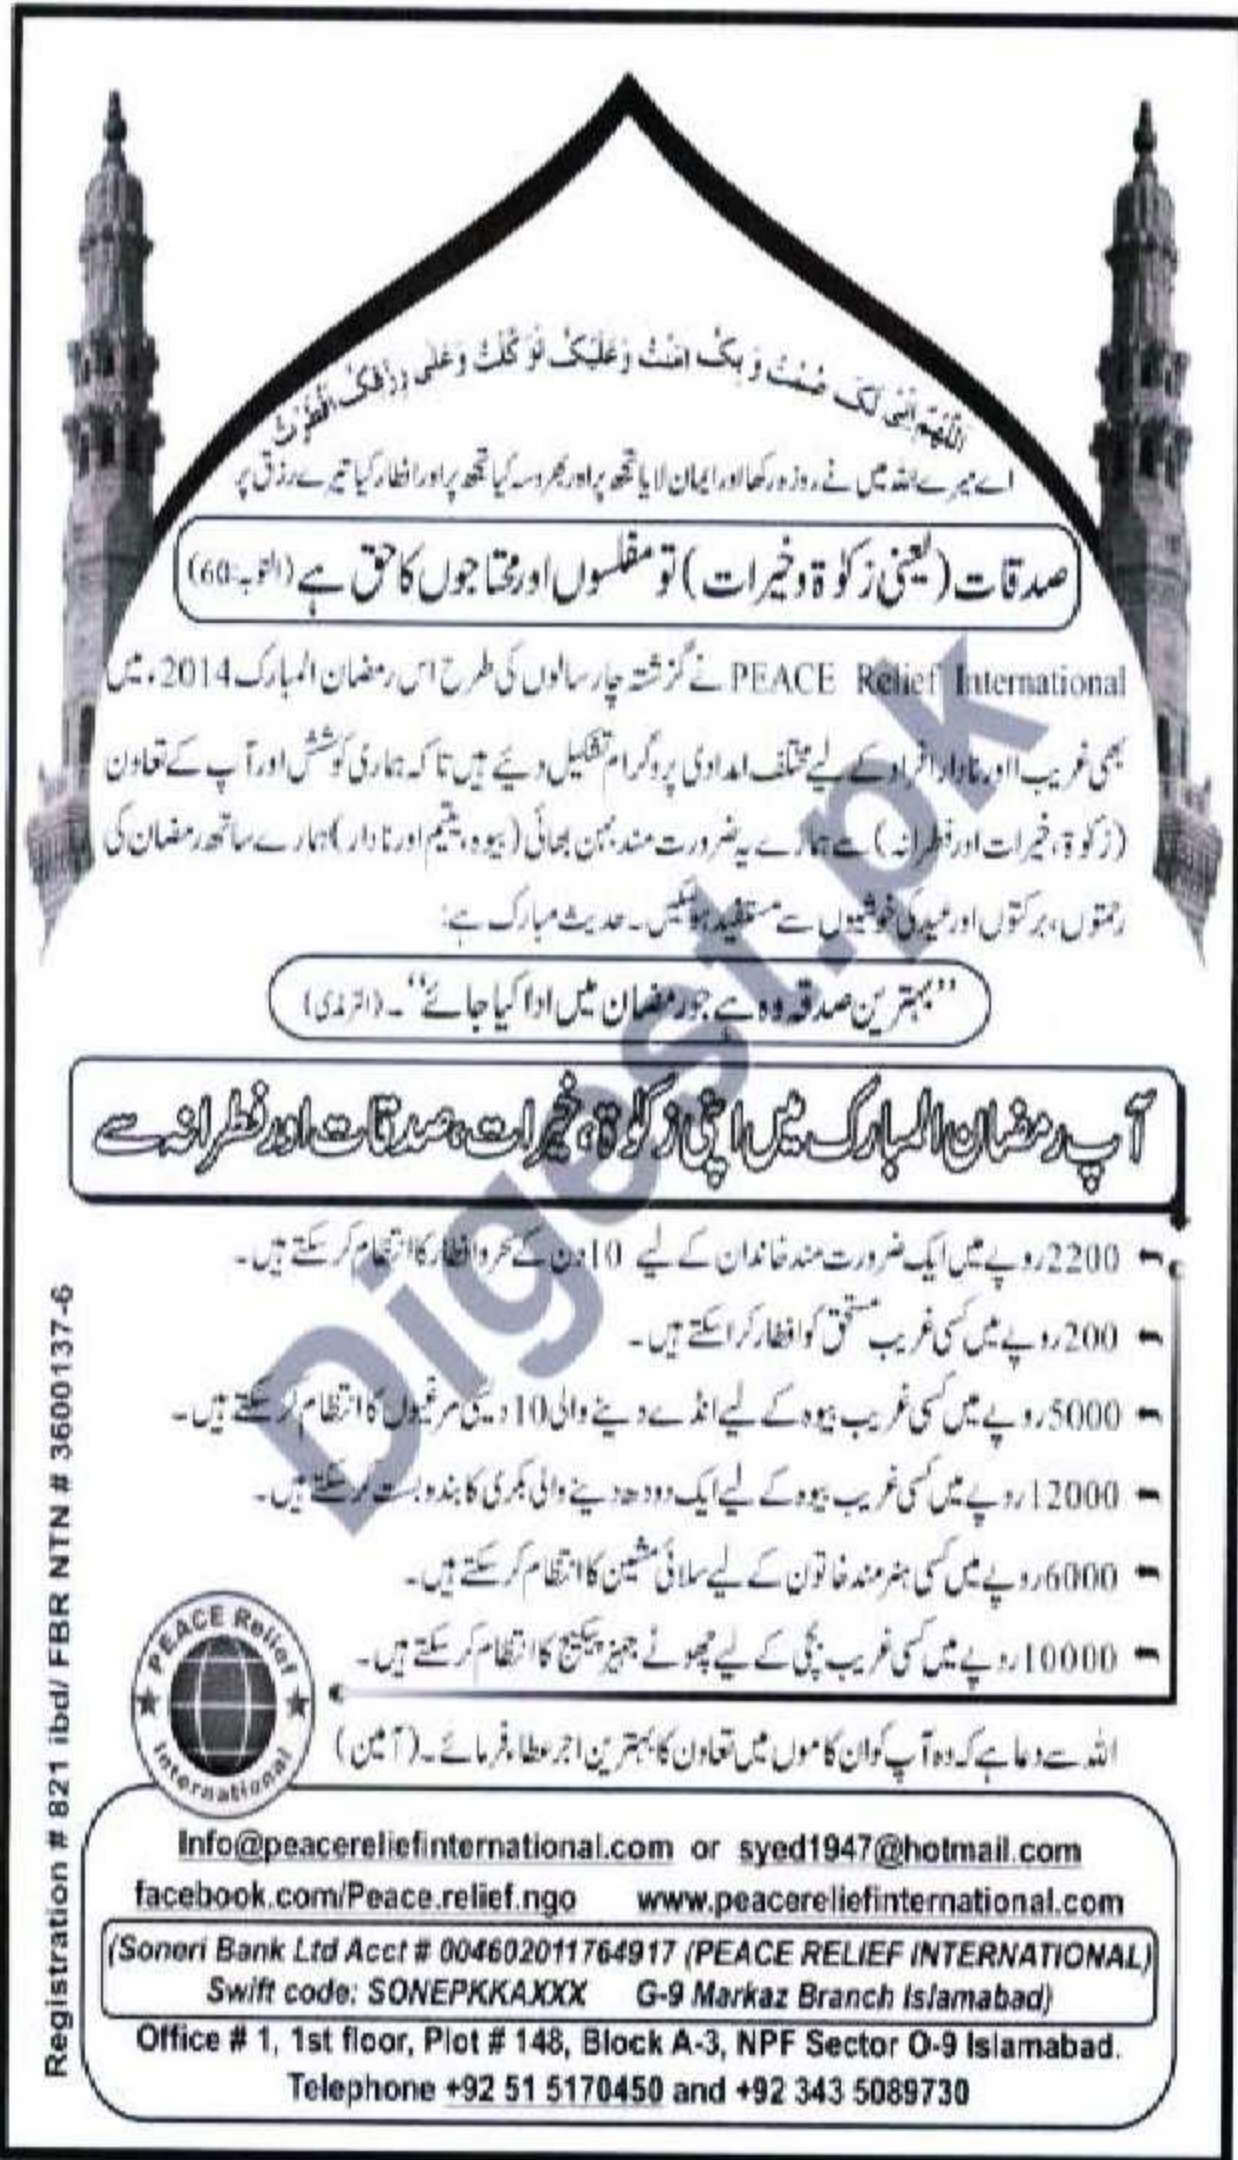 اَللّٰھُمَّ اِنِّی لَکَ صُمْتُ وَ بِکَ اٰمَنْتُ وَعَلَیْکَ تَوَکَّلْتُ وَعَلٰی رِزْقِکَ اَفْطَرْتُ
اے میرے اللہ میں نے روزہ رکھا اور ایمان لایا تجھ پر اور بھروسہ کیا تجھ پر اور افطار کیا تیرے رزق پر
صدقات (یعنی زکوٰۃ و خیرات) تو مفلسوں اور محتاجوں کا حق ہے (التوبہ:60)
PEACE Relief International نے گزشتہ چار سالوں کی طرح اس رمضان المبارک 2014ء میں
بھی غریب اور نادار افراد کے لیے مختلف امدادی پروگرام تشکیل دیئے ہیں تاکہ ہماری کوشش اور آپ کے تعاون
(زکوٰۃ، خیرات اور فطرانہ) سے ہمارے یہ ضرورت مند بہن بھائی (بیوہ، یتیم اور نادار) ہمارے ساتھ رمضان کی
رحمتوں، برکتوں اور عید کی خوشیوں سے مستفید ہوسکیں۔ حدیث مبارک ہے:
”بہترین صدقہ وہ ہے جو رمضان میں ادا کیا جائے“۔ (الترمذی)
آپ رمضان المبارک میں اپنی زکوٰۃ، خیرات، صدقات اور فطرانہ سے
2200 روپے میں ایک ضرورت مند خاندان کے لیے 10 دن کے سحر و افطار کا انتظام کر سکتے ہیں۔
200 روپے میں کسی غریب مستحق کو افطار کرا سکتے ہیں۔
5000 روپے میں کسی غریب بیوہ کے لیے انڈے دینے والی 10 دیسی مرغیوں کا انتظام کر سکتے ہیں۔
12000 روپے میں کسی غریب بیوہ کے لیے ایک دودھ دینے والی بکری کا بندوبست کر سکتے ہیں۔
6000 روپے میں کسی ہنر مند خاتون کے لیے سلائی مشین کا انتظام کر سکتے ہیں۔
10000 روپے میں کسی غریب بچی کے لیے چھوٹے جہیز پیکیج کا انتظام کر سکتے ہیں۔
اللہ سے دعا ہے کہ وہ آپ کو ان کاموں میں تعاون کا بہترین اجر عطاء فرمائے۔ (آمین)
PEACE Relief International
Info@peacereliefinternational.com or syed1947@hotmail.com
facebook.com/Peace.relief.ngo www.peacereliefinternational.com
(Soneri Bank Ltd Acct # 004602011764917 (PEACE RELIEF INTERNATIONAL)
Swift code: SONEPKKAXXX G-9 Markaz Branch Islamabad)
Office # 1, 1st floor, Plot # 148, Block A-3, NPF Sector O-9 Islamabad.
Telephone +92 51 5170450 and +92 343 5089730
Registration # 821 ibd/ FBR NTN # 3600137-6
Digest.pk